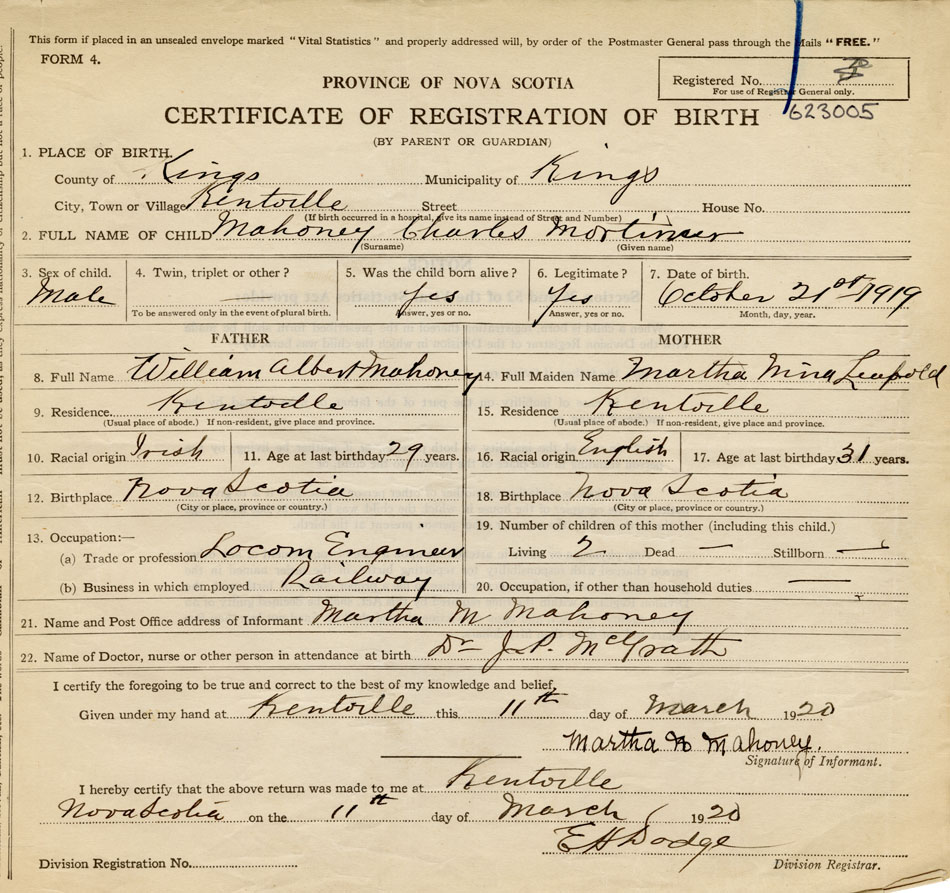 This form if placed in an unsealed envelope marked "Vital Statistics" and properly addressed will, by order of the Postmaster General pass through the Mails "FREE."
FORM 4.
Registered No.
For use of Registrar General only.
623005
PROVINCE OF NOVA SCOTIA
CERTIFICATE OF REGISTRATION OF BIRTH
(BY PARENT OR GUARDIAN)
1. PLACE OF BIRTH.
County of Kings Municipality of Kings
City, Town or Village Kentville Street House No.
(If birth occurred in a hospital, give its name instead of Street and Number)
2. FULL NAME OF CHILD Mahoney Charles Mortimer
(Surname) (Given name)
3. Sex of child. 4. Twin, triplet or other? 5. Was the child born alive? 6. Legitimate? 7. Date of birth.
Male Yes Yes October 21st 1919
To be answered only in the event of plural birth. Answer, yes or no. Answer, yes or no. Month, day, year.
FATHER MOTHER
8. Full Name William Albert Mahoney 14. Full Maiden Name Martha Nina Leopold
9. Residence. Kentville 15. Residence Kentville
(Usual place of abode.) If non-resident, give place and province. (Usual place of abode.) If non-resident, give place and province.
10. Racial origin Irish 11. Age at last birthday 29 years. 16. Racial origin English 17. Age at last birthday 31 years.
12. Birthplace Nova Scotia 18. Birthplace Nova Scotia
(City or place, province or country.) (City or place, province or country.)
13. Occupation:— 19. Number of children of this mother (including this child.)
(a) Trade or profession Locom Engineer Living 2 Dead — Stillborn —
(b) Business in which employed Railway 20. Occupation, if other than household duties —
21. Name and Post Office address of Informant Martha M Mahoney
22. Name of Doctor, nurse or other person in attendance at birth Dr J. P. McGrath
I certify the foregoing to be true and correct to the best of my knowledge and belief,
Given under my hand at Kentville this 11th day of March 1920
Martha N Mahoney.
Signature of Informant.
I hereby certify that the above return was made to me at Kentville
Nova Scotia on the 11th day of March 1920
E H Dodge
Division Registration No. Division Registrar.